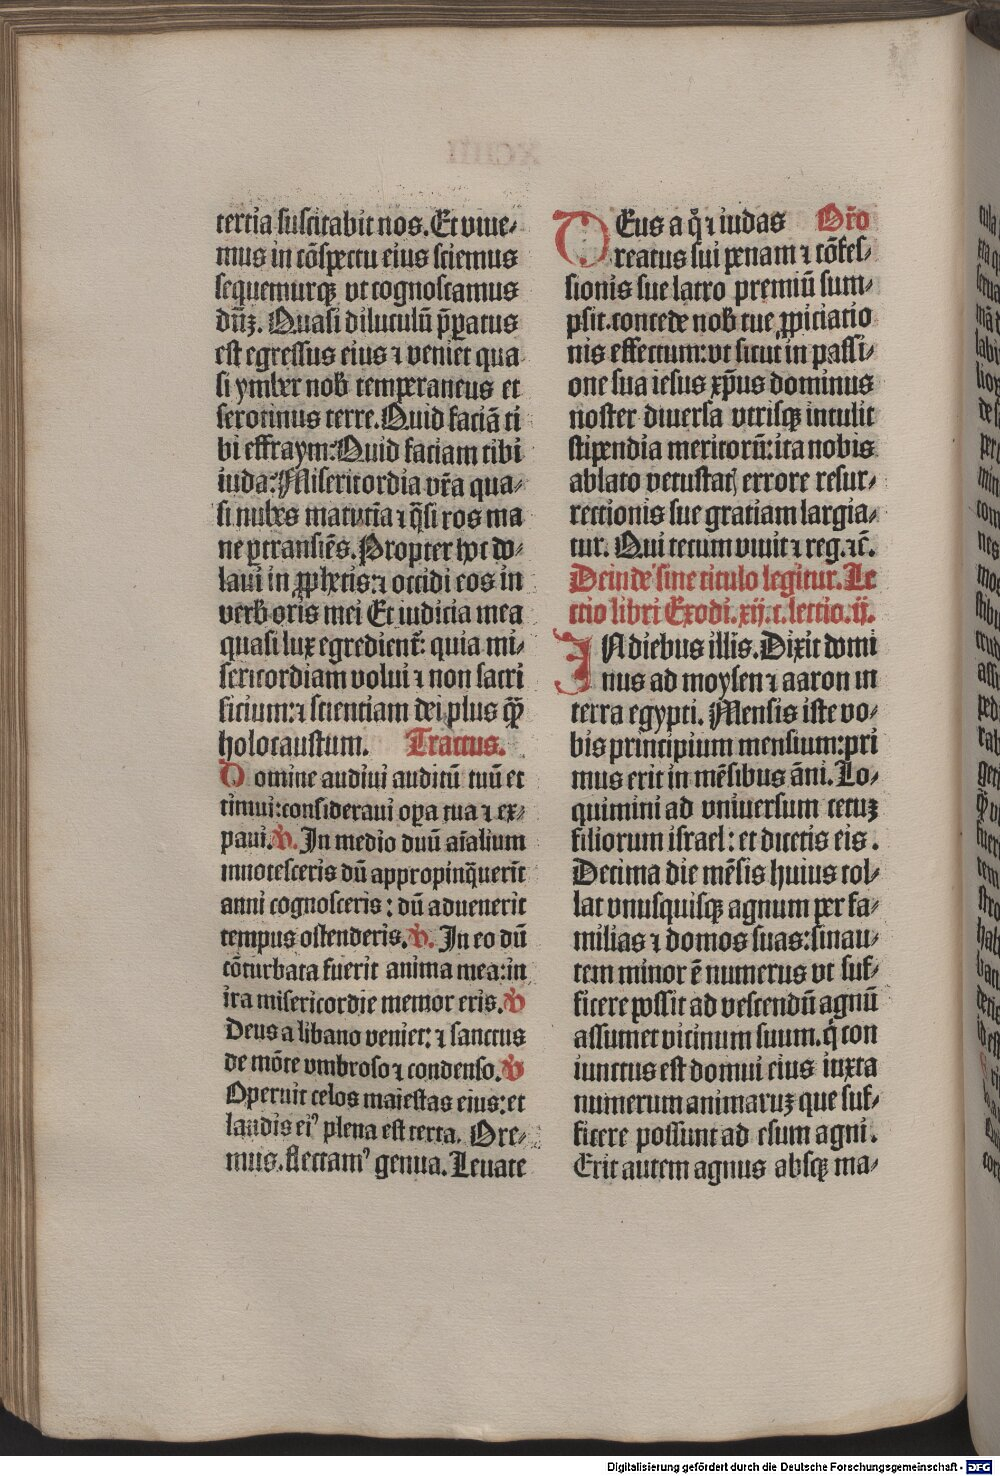 tertia suscitabit nos. Et viue⸗
mus in cōspectu eius sciemus
sequemurqꝫ vt cognoscamus
dn̄ꝫ. Quasi diluculū p̄ꝑatus
est egressus eius ⁊ veniet qua
si ymber nob̄ temperaneus et
serotinus terre. Quid faciā ti
bi effraym: Quid faciam tibi
iuda: Misericordia vr̄a qua⸗
si nubes matutīa ⁊ q̄si ros ma
ne ꝑtransiēs. Propter hoc do⸗
laui in ꝓphetis: ⁊ occidi eos in
verb̄ oris mei Et iudicia mea
quasi lux egredient̄: quia mi⸗
sericordiam volui ⁊ non sacri
ficium: ⁊ scientiam dei plus qꝫ̄
holocaustum. Tractus.
Domine audiui auditū tuū et
timui: consideraui oꝑa tua ⁊ ex⸗
paui. ℣. In medio duū aīalium
innotesceris dū appropinq̄uerīt
anni cognosceris: dū aduenerit
tempus ostenderis. ℣. In eo dū
cōturbata fuerit anima mea: in
ira misericordie memor eris. ℣
Deus a libano veniet: ⁊ sanctus
de mōte vmbroso ⁊ condenso. ℣
Operuit celos maiestas eius: et
laudis eiꝰ plena est terra. Ore⸗
mus. flectamꝰ genua. Leuate
DEus a q̊ ⁊ iudas Or̄o
reatus sui penam ⁊ cōfes⸗
sionis sue latro premiū sum⸗
psit. concede nob̄ tue ꝓpiciatio
nis effectum: vt sicut in passi⸗
one sua iesus xp̄us dominus
noster diuersa vtrisqꝫ intulit
stipendia meritorū: ita nobis
ablato vetustatꝭ errore resur⸗
rectionis sue gratiam largia⸗
tur. Qui tecum viuit ⁊ reg. ⁊c̄.
Deinde sine titulo legitur. Le
ctio libri Exodi. xij. c. lectio. ij.
IN diebus illis. Dixit domi
nus ad moysen ⁊ aaron in
terra egypti. Mensis iste vo⸗
bis principium mensium: pri
mus erit in mēsibus āni. Lo⸗
quimini ad vniuersum cetuꝫ
filiorum israel: et dicetis eis.
Decima die mēsis huius tol⸗
lat vnusquisqꝫ agnum per fa⸗
milias ⁊ domos suas: sin au⸗
tem minor ē numerus vt suf⸗
ficere possit ad vescendū agnū
assumet vicinum suum. q̇ con
iunctus est domui eius iuxta
numerum animaruꝫ que suf⸗
ficere possunt ad esum agni.
Erit autem agnus absqꝫ ma⸗
Digitalisierung gefördert durch die Deutsche Forschungsgemeinschaft - DFG